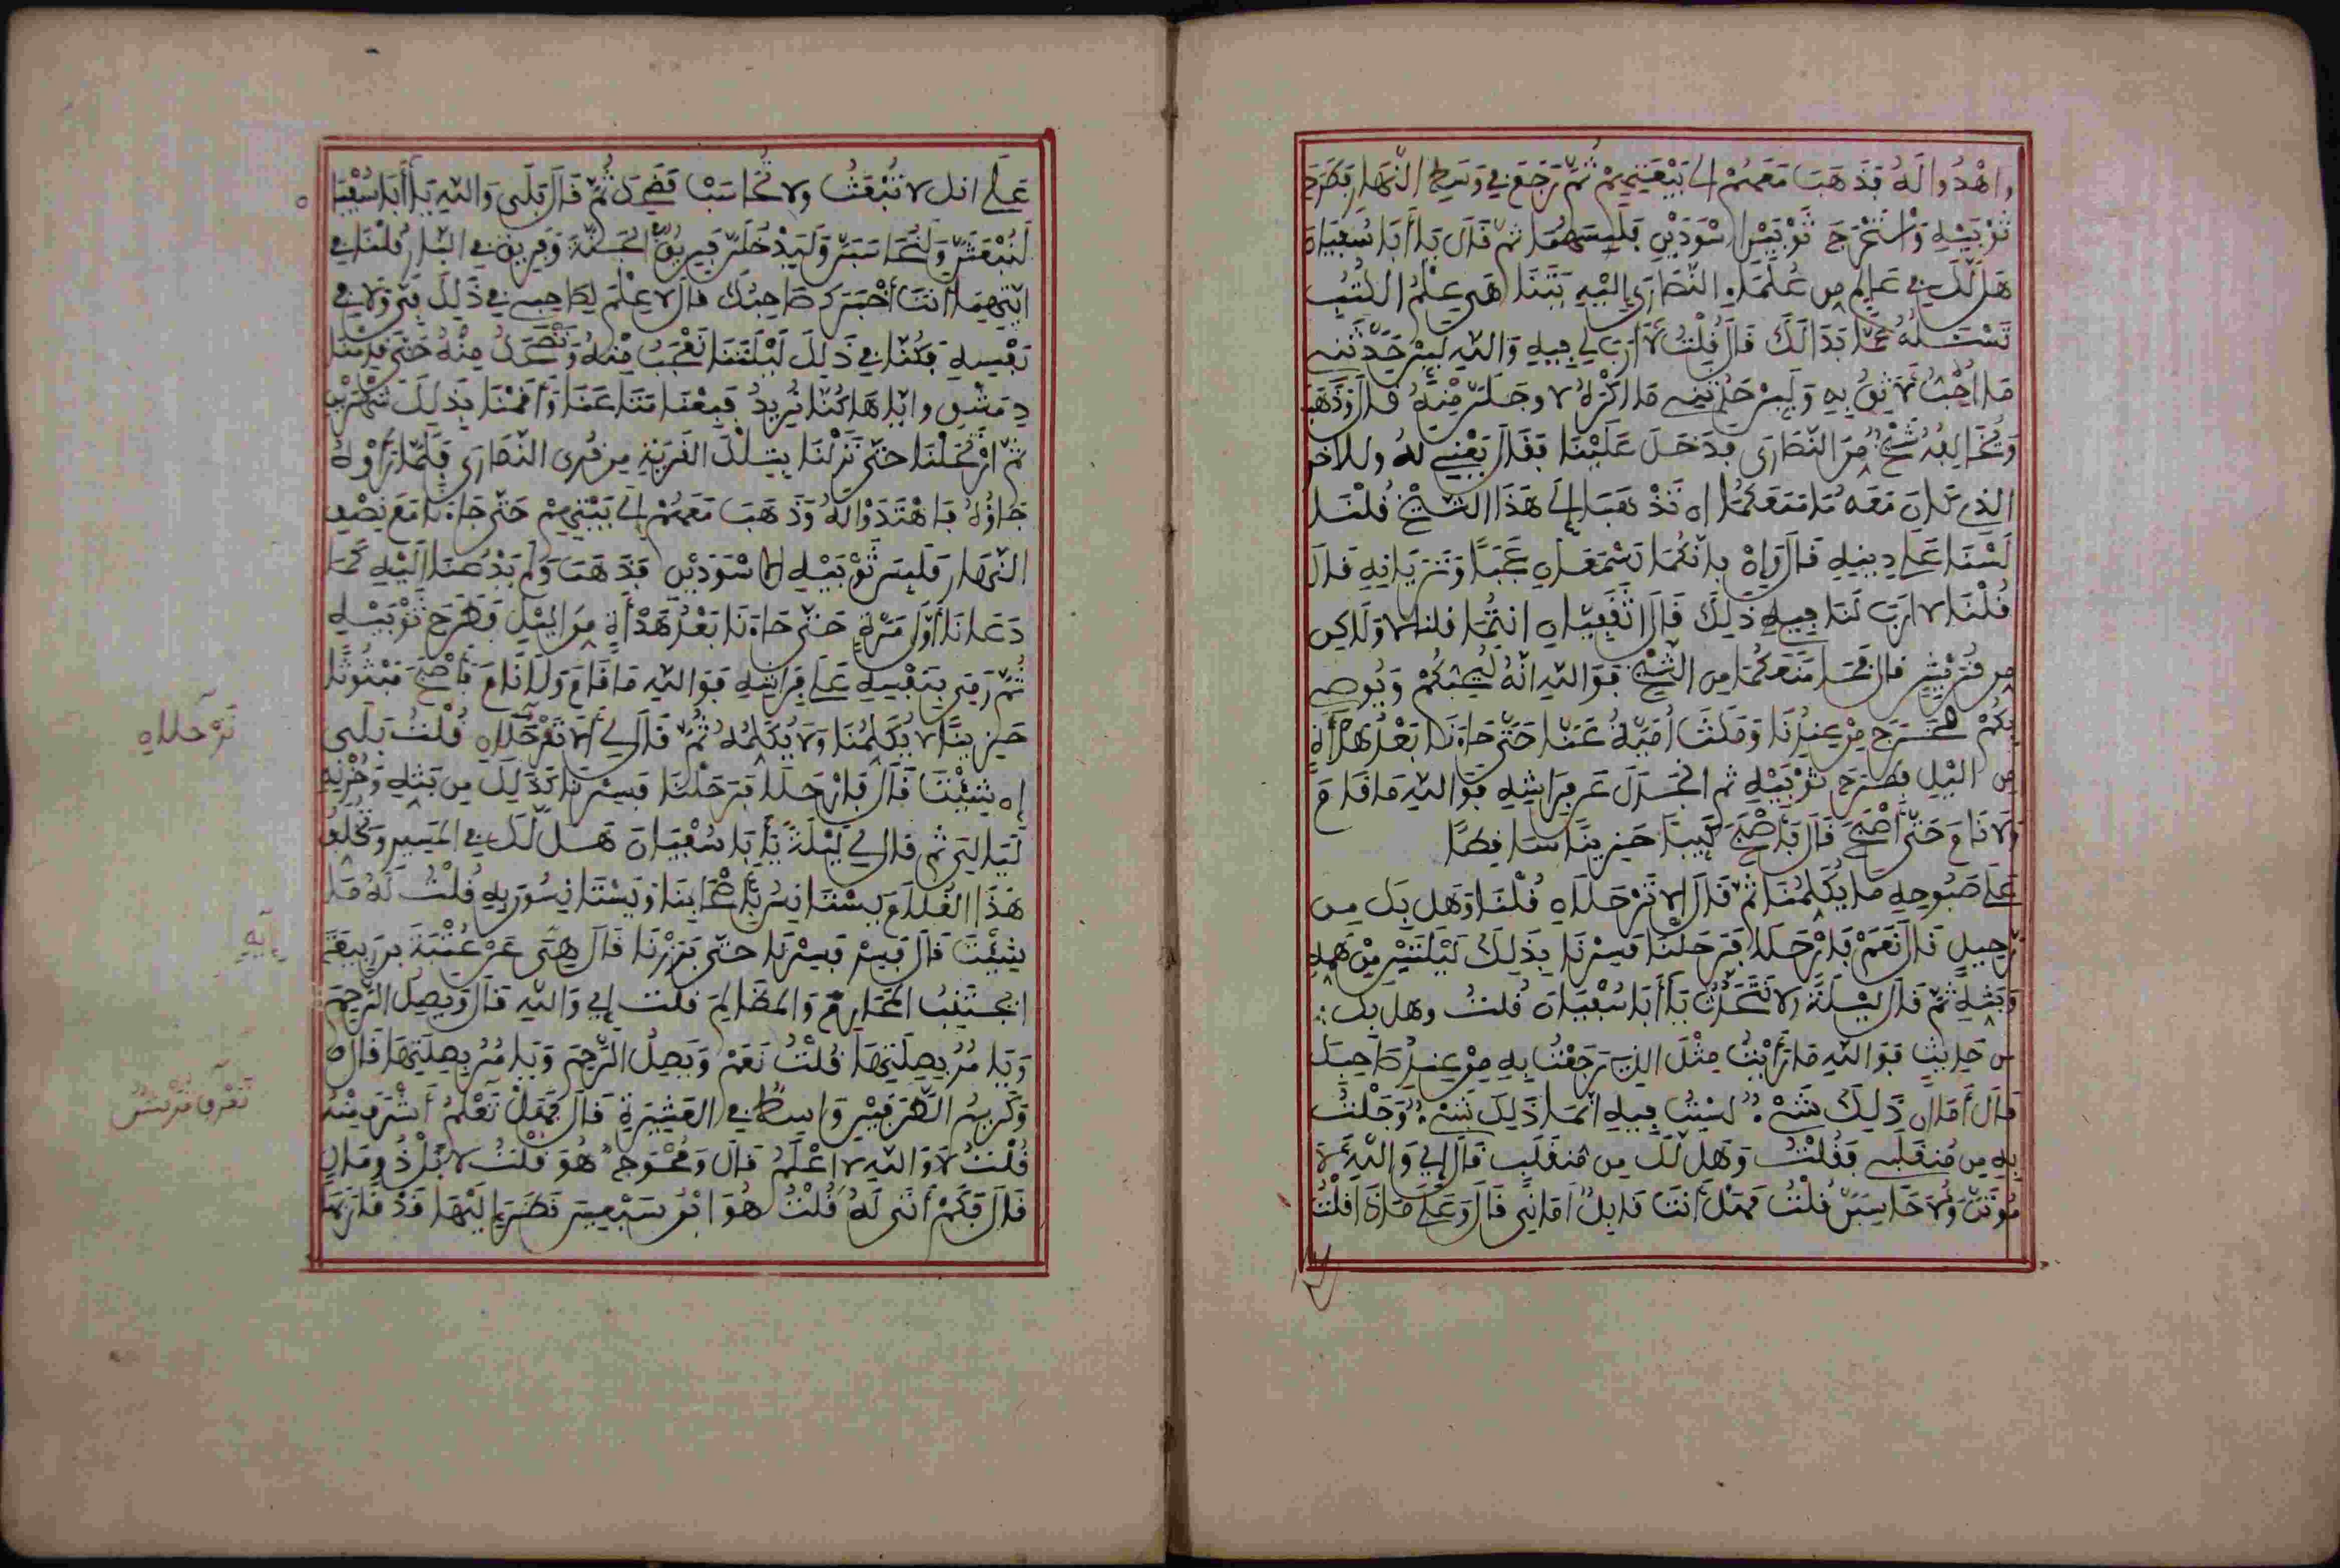 واهْدُوا لَهُ فَذَهَبَ مَعَهُمْ إلى بَيْعَتِهِمْ ثُمَّ رَجَعَ في وَسَطِ النَّهَارِ فَطَرَحَ
ثَوْبَيْهِ وَاسْتَخْرَجَ ثَوْبَيْنِ أسْوَدَيْنِ فَلَبِسَهُمَا ثم قَالَ يَا أَبَا سُفْيَانَ
هَل لَّكَ في عَالِمٍ من عُلَمَاءِ النَّصَارَى إليْهِ يَتَنَاهَى عِلْمُ الكُتُبِ
تَسْئَلُهُ عَمَّا بَدَا لَكَ قَالَ قُلْتُ لَا أَرَبَ لي فِيهِ وَاللَّهِ لَئِنْ حَدَّثَنِي
مَا أُحِبُّ لَا أَثِقُ بِهِ وَلَئِنْ حَدَّثَنِي مَا أَكْرَهُ لأوجَلَنَّ مِنْهُ قال وَذَهَبَ
وَيُخَالِفُهُ شَيْخٌ مِنَ النَّصَارَى فدَخَلَ عَلَيْنَا فَقَالَ يَعْنِي لَهُ وللآخر
الذي كَانَ مَعَه مَا مَنَعَكُمَا ان تَذْهَبَا إلَى هَذَا الشَّيْخِ قُلْنَا
لَسْنَا عَلَى دِينِهِ قَالَ وَإنْ فإنَّكُمَا تَسْمَعَانِ عَجَبًا وَتَرَيَانِهِ قَالَ
قُلْنَا لا أرَبَ لَنَا فِيهِ ذَلِكَ قَالَ أثَقَفِيَّانِ انتُمَا قلنا لا وَلَاكِن
من قُرَيْشٍ قال فَمَا مَنَعَكُمَا مِن الشَّيْخِ فَوَ اللَّهِ انَّهُ لَيُحِبُّكُمْ وَيُوصِي
بِكُمْ فخَرَجَ مِنْ عِنْدِنَا وَمَكَثَ أُمَيَّةُ عَنَّا حَتَّى جَاءَنَا بَعْدَ هَدْأَةٍ
مِنَ اللَّيْلِ فطَرَحَ ثَوْبَيْهِ ثم انْجَدَلَ عَلى فِرَاشِهِ فَوَ اللَّهِ مَا قَامَ
وَلَا نَامَ حَتَّى أَصْبَحَ قَالَ فَأَصْبَحَ كَئِيبًا حَزِينًا سَاقِطًا
عَلَى صَبُوحِهِ ما يُكَلِّمُنَا ثُمَّ قَالَ الا تَرْحَلَانِ قُلْنَا وَهَل بِكَ من
رَّحِيلٍ قَالَ نَعَمْ فَارْحَلَا فَرَحَلْنَا فَسِرْنَا بِذَلِكَ لَيْلَتَيْنِ مِنْ هَمِّهِ
وَبَثِّهِ ثُمَّ قَالَ لَيْلَةً الا تَتَحَدَّثُ يَا أَبَا سُفْيَانَ قُلتُ وهل بك
من حَدِيثٍ فَوَ اللَّهِ مَا رَأَيْتُ مِثْلَ الذي رَجَعْتَ بِهِ مِنْ عِنْدِ صَاحِبِكَ
قَالَ أمَا إن ذَلِكَ شَيْءٌ لَسْتَ فِيهِ انَّمَا ذَلِكَ شَيْءٌ وَجَلْتُ
بِهِ مِن مُنقَلَبِي فَقُلْتُ وَهَل لَّكَ مِن مُنقَلَبٍ قَالَ إي وَاللَّهِ لَا
مُوتَنَّ وَلَاحَاسَبَنَّ قُلتُ فَهَلْ أَنتَ قَابِلٌ أَمَانِي قَالَ وَعَلَى مَاذَا قُلْتُ
عَلَى انك لا تُبْعَثُ ولا تُحَاسَبُ فَضَحِكَ ثُمَّ قَالَ بَلَى وَاللَّهِ يَا أَبَا سُفْيَانَ
لَنُبْعَثَنَّ وَلَنُحَاسَبَنَّ وَلَيَدْخُلَنَّ فَرِيقٌ الجَنَّةَ وَفَرِيقٌ في النَّارِ قُلْتُ في
أيِّهِمَا أَنتَ أَخْبَرَكَ صَاحِبُكَ قال لا عِلْمَ لِصَاحِبِي في ذَلِكَ فيَّ وَلَا في
نَفْسِهِ فَكُنَّا في ذَلِكَ لَيْلَتَنَا نَعْجَبُ مِنْهُ وَنَضْحَكُ مِنْهُ حَتَّى قَدِمْنَا
دِمَشْقَ وايَّاهَا كُنَّا نُرِيدُ فَبِعْنَا مَتَاعَنَا وَأَقَمْنَا بِذَلِكَ شَهْرَيْنِ
ثم ارْتَحَلْنَا حَتَّى نَزَلْنَا بتِلْكَ القَرْيَةِ من قُرَى النَّصَارَى فَلَمَّا رَأَوْهُ
جَاؤُهُ فَاهْتَدَوْا لَهُ وَذَهَبَ مَعَهُمْ إلى بَيْتِهِمْ حَتَّى جَاءَنَا مَعَ نِصْفِ
النَّهَارِ فَلَبِسَ ثَوْبَيْهِ الأسْوَدَيْنِ فَذَهَبَ وَلَمْ يَدْعُنَا إلَيْهِ كَمَا
دَعَانَا أَوَّلَ مَرَّةٍ حَتَّى جَاءَنَا بَعْدَ هَدْأَةٍ مِنَ اللَّيْلِ فَطَرَحَ ثَوْبَيْهِ
ثُمَّ رَمَى بِنَفْسِهِ عَلَى فِرَاشِهِ فَوَ اللَّهِ مَا قَامَ وَلَا نَامَ فَأَصْبَحَ مَبْثُوثًا
حَزِينًا لا يُكَلِّمُنَا وَلَا نُكَلِّمُهُ ثُمَّ قَالَ لِي أَلَا تَرْحَلَانِ قُلْتُ بَلَى
إن شِئْتَ قَالَ فَارْحَلَا فَرَحَلْنَا فَسِرْنَا كَذَلِكَ مِن بَثِّهِ وَحُزْنِهِ
لَيَالِيَ ثم قَالَ لِي لَيْلَةً يَا أَبَا سُفْيَانَ هَل لَّكَ في المَسِيرِ وَتُخَلِّفُ
هَذَا الغُلَامَ يَسْتَانِسُ بِأَصْحَابِنَا وَيَسْتَانِسُونَ بِهِ قُلْتُ لَهُ مَا
شِئْتَ قَالَ فَسِرْ فَسِرْنَا حَتَّى بَرَزْنَا قَالَ هِيَّ عَنْ عُتْبَةَ بن رَبِيعَةَ
ايَجْتَنِبُ المَحَارِمَ وَالمَظَالِمَ قلت إي وَاللَّهِ قَالَ وَيَصِلُ الرَّحِمَ
وَيَامُرُ بِصِلَتِهَا قُلْتُ نَعَمْ وَيَصِلُ الرَّحِمَ وَيَامُرُ بِصِلَتِهَا قَالَ
وَكَرِيمُ الطَّرَفَيْنِ وَاسِطٌ في العَشِيرَةِ قَالَ فَهَلْ تَعْلَمُ أَشْرَفَ مِنْهُ
قُلْتُ لَا وَاللَّهِ لا أَعْلَمُ قَالَ وَمُحْوِجٌ هُوَ قُلْتُ لا بَلْ ذُو مَالٍ
قَالَ فَكَمْ أَتَى لَهُ قُلْتُ هُوَ ابْنُ سَبْعِينَ نَظَرَ إلَيْهَا قَدْ قَارَبَهَا
تَرْحلانِ